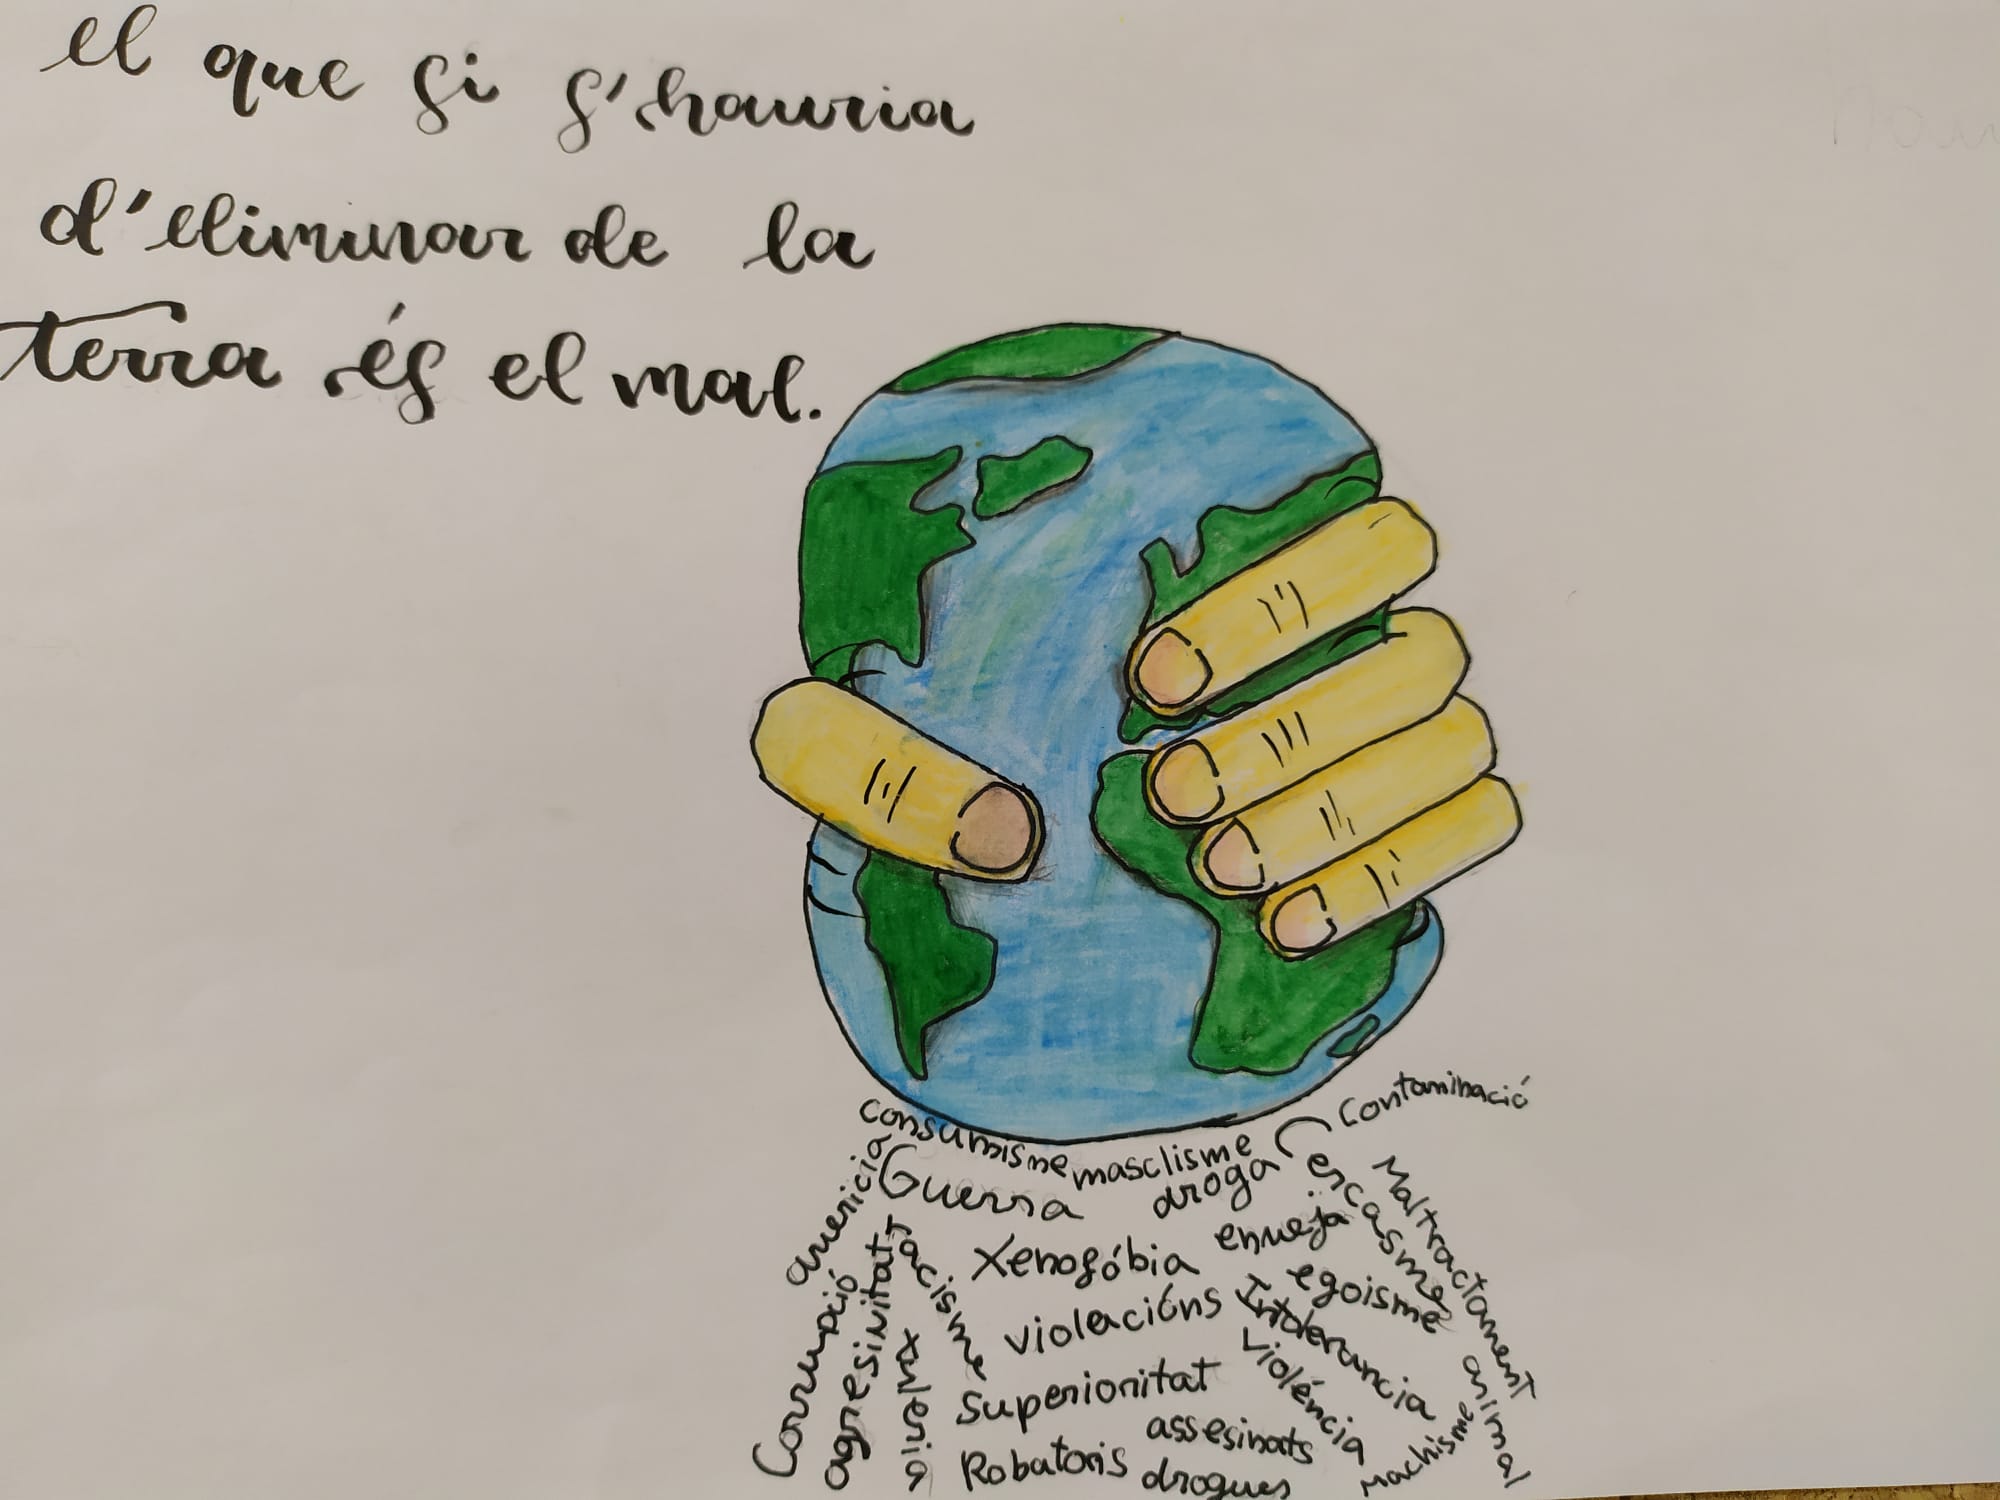 el que si s'hauria
d'eliminar de la
terra és el mal.
Contaminació
consumisme
masclisme
droga
Guerra
avericia
escasme
Maltractament animal
enveja
Xenofóbia
racisme
egoisme
Corrupció
agresinitat
violacións
Intolerancia
Violéncia
xuleria
Superioritat
assesinats
Machisme
Robatoris
drogues